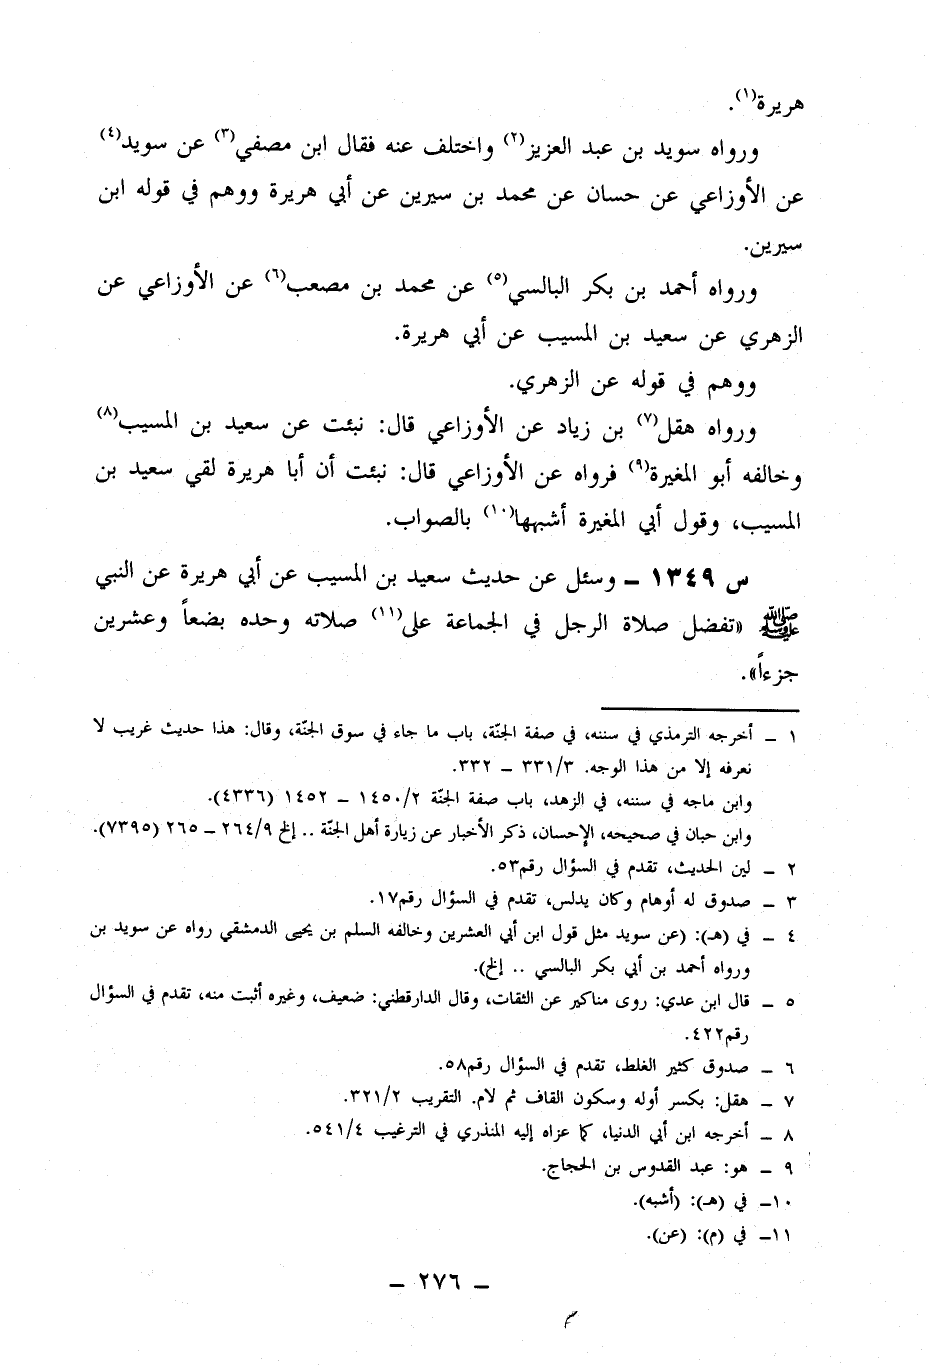 هريرة(١).
ورواه سويد بن عبد العزيز(٢) واختلف عنه فقال ابن مصفي(٣) عن سويد(٤)
عن الأوزاعي عن حسان عن محمد بن سيرين عن أبي هريرة ووهم في قوله ابن
سيرين.
ورواه أحمد بن بكر البالسي(٥) عن محمد بن مصعب(٦) عن الأوزاعي عن
الزهري عن سعيد بن المسيب عن أبي هريرة.
ووهم في قوله عن الزهري.
ورواه هقل(٧) بن زياد عن الأوزاعي قال: نبئت عن سعيد بن المسيب(٨)
وخالفه أبو المغيرة(٩) فرواه عن الأوزاعي قال: نبئت أن أبا هريرة لقي سعيد بن
المسيب، وقول أبي المغيرة أشبهها(١٠) بالصواب.
س ١٣٤٩ – وسئل عن حديث سعيد بن المسيب عن أبي هريرة عن النبي
ﷺ «تفضل صلاة الرجل في الجماعة على(١١) صلاته وحده بضعاً وعشرين
جزءاً».
١ – أخرجه الترمذي في سننه، في صفة الجنّة، باب ما جاء في سوق الجنّة، وقال: هذا حديث غريب لا
نعرفه إلا من هذا الوجه. ٣٣١/٣ – ٣٣٢.
وابن ماجه في سننه، في الزهد، باب صفة الجنّة ١٤٥٠/٢ – ١٤٥٢ (٤٣٣٦).
وابن حبان في صحيحه، الإحسان، ذكر الأخبار عن زيارة أهل الجنّة .. إلخ ٢٦٤/٩ – ٢٦٥ (٧٣٩٥).
٢ – لين الحديث، تقدم في السؤال رقم٥٣.
٣ – صدوق له أوهام وكان يدلس، تقدم في السؤال رقم١٧.
٤ – في (هـ): (عن سويد مثل قول ابن أبي العشرين وخالفه السلم بن يحيى الدمشقي رواه عن سويد بن
ورواه أحمد بن أبي بكر البالسي .. إلخ).
٥ – قال ابن عدي: روى مناكير عن الثقات، وقال الدارقطني: ضعيف، وغيره أثبت منه، تقدم في السؤال
رقم٤٢٢.
٦ – صدوق كثير الغلط، تقدم في السؤال رقم٥٨.
٧ – هقل: بكسر أوله وسكون القاف ثم لام. التقريب ٣٢١/٢.
٨ – أخرجه ابن أبي الدنيا، كما عزاه إليه المنذري في الترغيب ٥٤١/٤.
٩ – هو: عبد القدوس بن الحجاج.
١٠– في (هـ): (أشبه).
١١– في (م): (عن).
– ٢٧٦ –